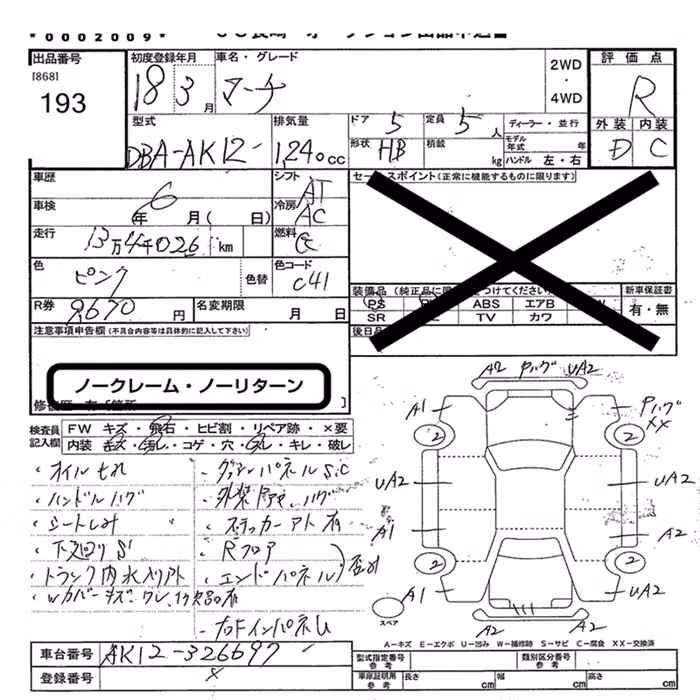 *0002009*
出品番号
[868]
193
初度登録年月
18 3月
車名・グレード
マーチ
2WD
・
4WD
評価点
R
外装 内装
D C
型式
DBA-AK12
排気量
1,240cc
ドア 5
定員 5人
形状 HB
積載 kg
ディーラー・並行
モデル年式 年
ハンドル 左・右
車歴
シフト AT
車検 6年 月( 日)
冷房 AC
走行 13万4千026 km
燃料 G
色 ピンク
色替
色コード C41
R券 9,670円
名変期限 月 日
セールスポイント(正常に機能するものに限ります)
新車保証書
有・無
PS ABS エアB
SR TV カワ
後日品
注意事項申告欄(不具合内容等は具体的に記入して下さい)
ノークレーム・ノーリターン
検査員記入欄
FW キズ・飛石・ヒビ割・リペア跡・×要
内装 キズ・汚れ・コゲ・穴・スレ・キレ・破レ
・オイルもれ
・ハンドルハゲ
・シートしみ
・下廻りS
・トランク内水入りアト
・Wカバーキズ・ワレ、欠品有
・ダッシュパネルS.C
・ステッカーアト有
・Rフロア
・エンドパネル
・右Fインパネし
A2 Pハゲ UA2
A1 Pハゲ
XX
2 2
UA2 UA2
A1 A2
2 2
A1 UA2
A2 A2
スペア
A－キズ E－エクボ U－凹み W－補修跡 S－サビ C－腐食 XX－交換済
車台番号 AK12-326697
登録番号 ×
型式指定番号
参考
類別区分番号
参考
車庫証明用
参考
長さ cm
幅 cm
高さ cm